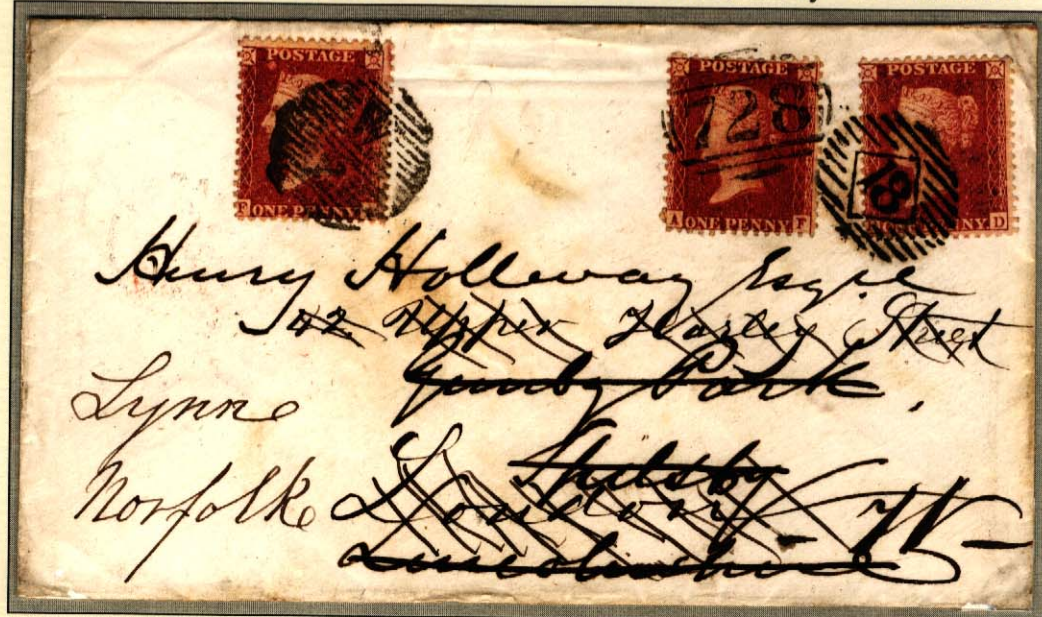 POSTAGE
E ONE PENNY
POSTAGE
728
A ONE PENNY F
POSTAGE
18
NY D
Henry Holleway Esqre
102 Upper Harley Street
Gunby Park,
Lynne
Spilsby
Norfolk London W
Lincolnshire